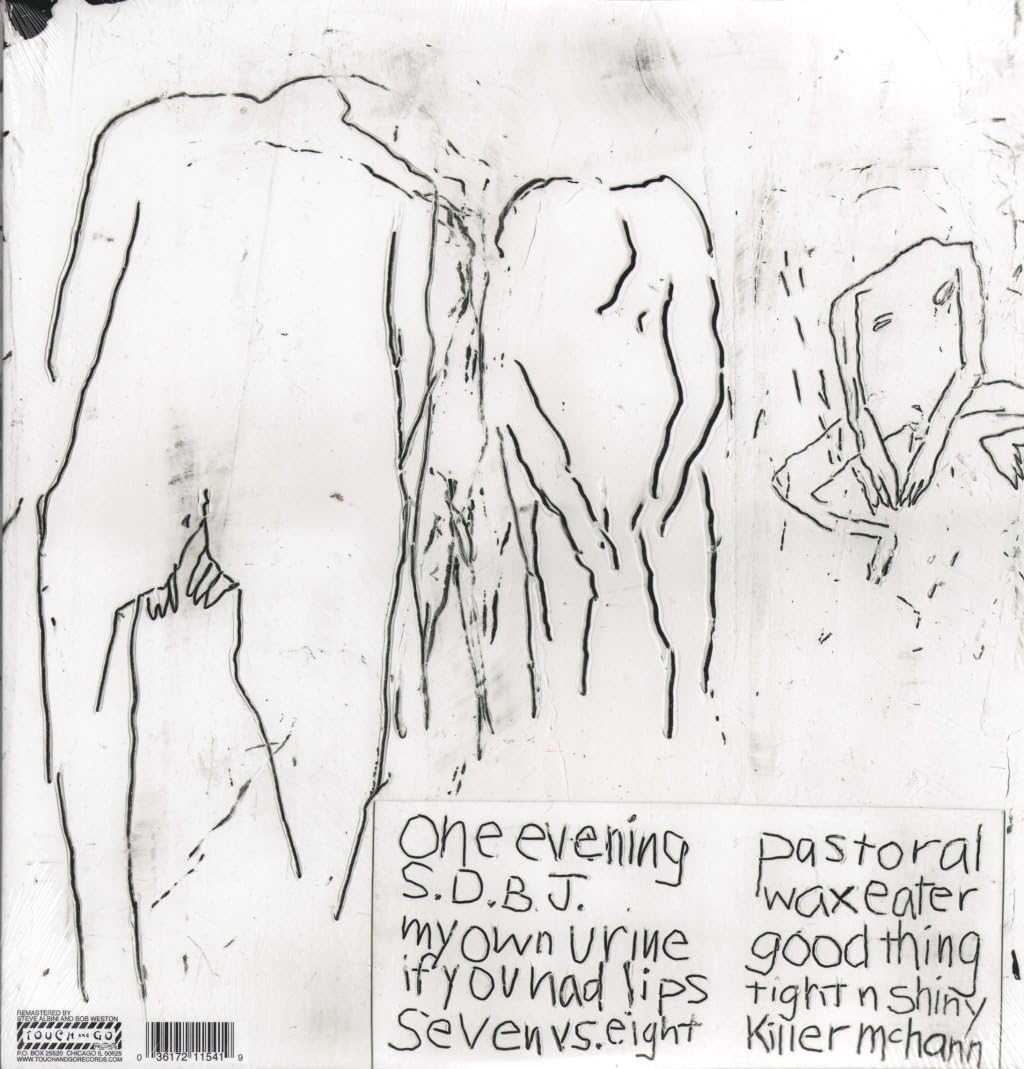 One evening
S.D.B.J.
my own urine
if you had lips
Seven vs. eight
pastoral
waxeater
good thing
tight n shiny
Killer mchann
REMASTERED BY
STEVE ALBINI AND BOB WESTON
TOUCH and GO
P.O. BOX 25520 CHICAGO IL 60625
WWW.TOUCHANDGORECORDS.COM
0 36172 11541 9